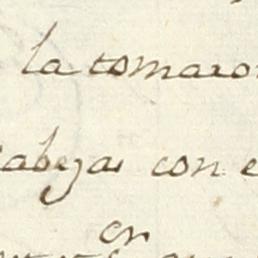 la tomaron
cabezas con e
en